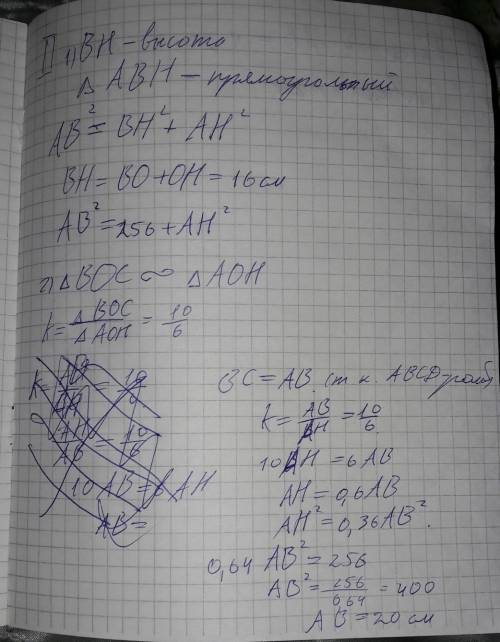 II 1) BH – высота
△ ABH – прямоугольный
AB² = BH² + AH²
BH = BO + OH = 16 см
AB² = 256 + AH²
2) △ BOC ∾ △ AOH
k = △ BOC / △ AOH = 10/6
BC = AB (т. к. ABCD – ромб)
k = AB/AH = 10/6
10 AH = 6 AB
AH = 0,6 AB
AH² = 0,36 AB².
0,64 AB² = 256
AB² = 256/0,64 = 400
AB = 20 см
10 AB = 6 AH
AB =